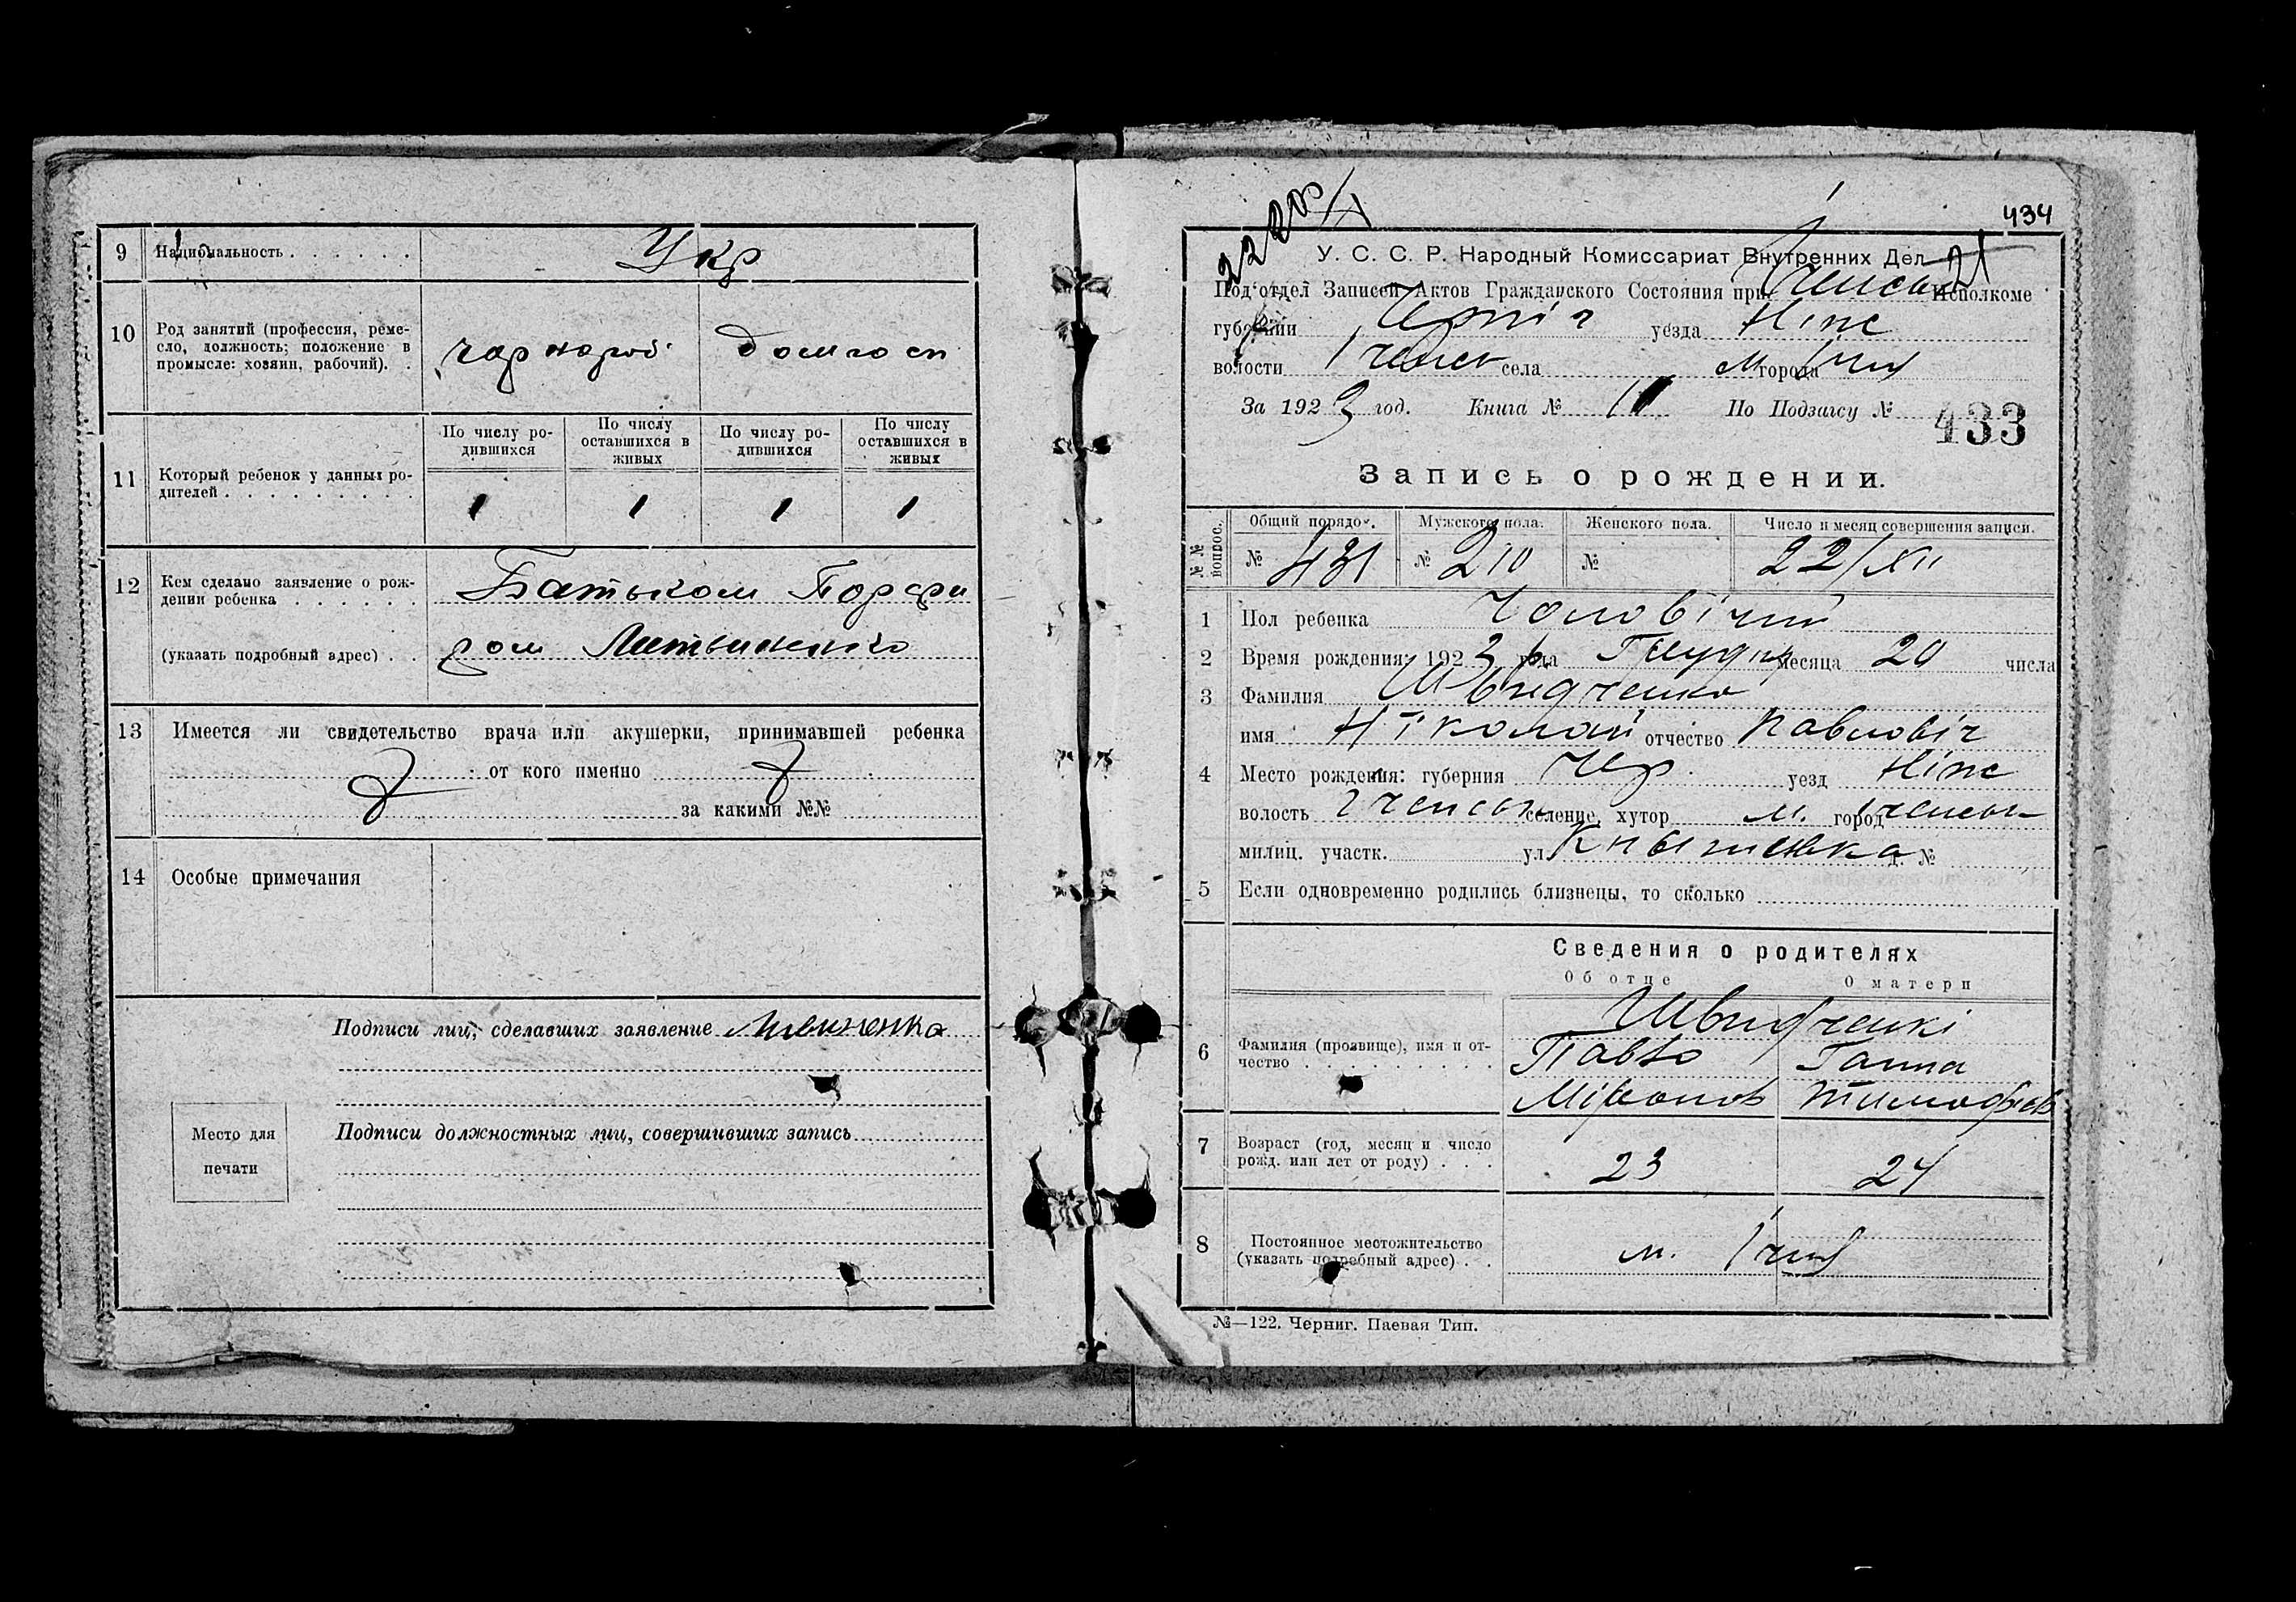 9 Национальность . . . . . . Укр
10 Род занятий (профессия, реме-
сло, должность; положение в
промысле: хозяин, рабочий). . чорнороб домгосп
11 Который ребенок у данных ро-
дителей . . . . . . . . .
По числу ро-
дившихся
По числу
оставшихся в
живых
По числу ро-
дившихся
По числу
оставшихся в
живых
1 1 1 1
12 Кем сделано заявление о рож-
дении ребенка . . . . . . Батьком
(указать подробный адрес) . .
13 Имеется ли свидетельство врача или акушерки, принимавшей ребенка
от кого именно
за какими №№
14 Особые примечания
Подписи лиц, сделавших заявление
Место для
печати
Подписи должностных лиц, совершивших запись
434
У. С. С. Р. Народный Комиссариат Внутренних Дел
Под'отдел Записей Актов Гражданского Состояния при Исполкоме
губернии Черніг уезда Ніже
волости Іченск села м города Ічня
За 1923 год. Книга № По Подзагсу № 433
Запись о рождении.
№№ вопрос.
Общий порядо . Мужского пола. Женского пола. Число и месяц совершения записи.
№ 431 № 210 № 22/XII
1 Пол ребенка Чоловічий
2 Время рождения: 1923 года Грудня месяца 20 числа
3 Фамилия Швидченко
имя Ніколай отчество Павловіч
4 Место рождения: губерния Чер. уезд Ніже
волость Іченськ селение, хутор м. город
милиц. участк. ул. д. №
5 Если одновременно родились близнецы, то сколько
Сведения о родителях
Об отце О матери
Швидченкі
6 Фамилия (прозвище), имя и от-
чество . . . . . . . . . Павло Ганна
Міронов Тимофієв
7 Возраст (год, месяц и число
рожд. или лет от роду) . . . 23 24
8 Постоянное местожительство
(указать подребный адрес) . . м. Ічня
№—122. Черниг. Паевая Тип.